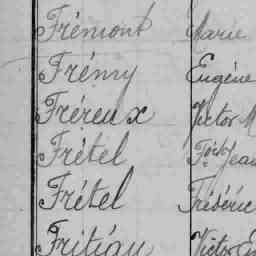 Frémont Marie
Frémy Eugène
Fréreux Victor M
Frétel Jean
Frétel Frédéric
Fritigny Victor